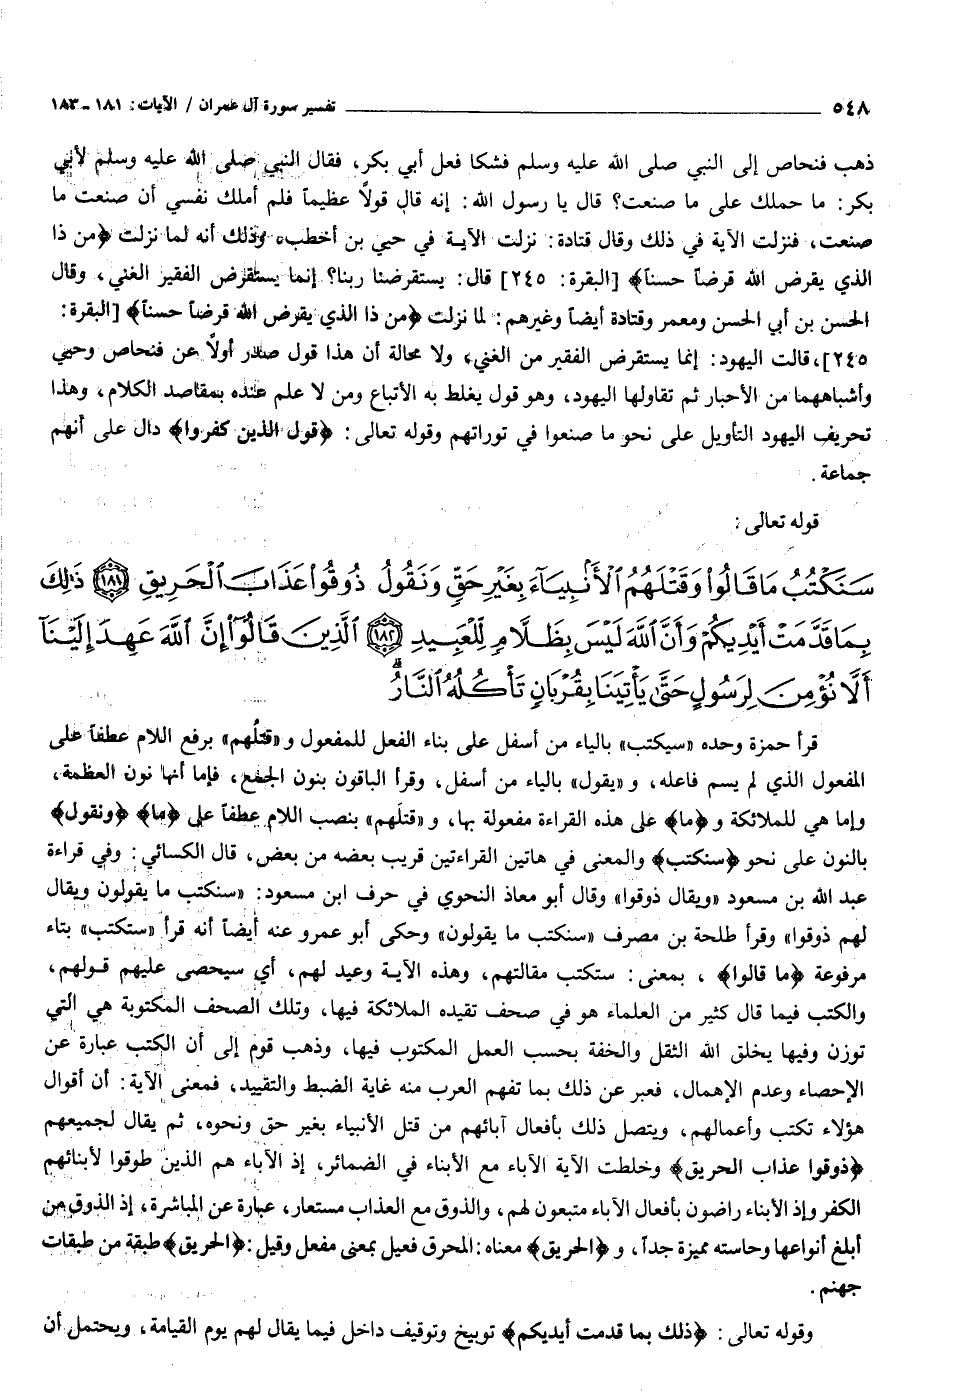 ٥٤٨ ــــــــــــــــــــــــــــــــــــــ تفسير سورة آل عمران / الآيات: ١٨١ ـ ١٨٣
ذهب فنحاص إلى النبي صلى الله عليه وسلم فشكا فعل أبي بكر، فقال النبي صلى الله عليه وسلم لأبي
بكر: ما حملك على ما صنعت؟ قال يا رسول الله: إنه قال قولاً عظيماً فلم أملك نفسي أن صنعت ما
صنعت، فنزلت الآية في ذلك وقال قتادة: نزلت الآية في حيي بن أخطب، وذلك أنه لما نزلت ﴿من ذا
الذي يقرض الله قرضاً حسناً﴾ [البقرة: ٢٤٥] قال: يستقرضنا ربنا؟ إنما يستقرض الفقير الغني، وقال
الحسن بن أبي الحسن ومعمر وقتادة أيضاً وغيرهم: لما نزلت ﴿من ذا الذي يقرض الله قرضاً حسناً﴾ [البقرة:
٢٤٥]، قالت اليهود: إنما يستقرض الفقير من الغني، ولا محالة أن هذا قول صدر أولاً عن فنحاص وحيي
وأشباههما من الأحبار ثم تقاولها اليهود، وهو قول يغلط به الأتباع ومن لا علم عنده بمقاصد الكلام، وهذا
تحريف اليهود التأويل على نحو ما صنعوا في توراتهم وقوله تعالى: ﴿قول الذين كفروا﴾ دال على أنهم
جماعة.
قوله تعالى:
سَنَكْتُبُ مَا قَالُوا۟ وَقَتْلَهُمُ ٱلْأَنۢبِيَآءَ بِغَيْرِ حَقٍّ وَنَقُولُ ذُوقُوا۟ عَذَابَ ٱلْحَرِيقِ ﴿١٨١﴾ ذَٰلِكَ
بِمَا قَدَّمَتْ أَيْدِيكُمْ وَأَنَّ ٱللَّهَ لَيْسَ بِظَلَّامٍ لِّلْعَبِيدِ ﴿١٨٢﴾ ٱلَّذِينَ قَالُوٓا۟ إِنَّ ٱللَّهَ عَهِدَ إِلَيْنَآ
أَلَّا نُؤْمِنَ لِرَسُولٍ حَتَّىٰ يَأْتِيَنَا بِقُرْبَانٍ تَأْكُلُهُ ٱلنَّارُ ۗ
قرأ حمزة وحده «سيكتب» بالياء من أسفل على بناء الفعل للمفعول و «قتلُهم» برفع اللام عطفاً على
المفعول الذي لم يسم فاعله، و «يقول» بالياء من أسفل، وقرأ الباقون بنون الجمع، فإما أنها نون العظمة،
وإما هي للملائكة و ﴿ما﴾ على هذه القراءة مفعولة بها، و «قتلَهم» بنصب اللام عطفاً على ﴿ما﴾ ﴿ونقول﴾
بالنون على نحو ﴿سنكتب﴾ والمعنى في هاتين القراءتين قريب بعضه من بعض، قال الكسائي: وفي قراءة
عبد الله بن مسعود «ويقال ذوقوا» وقال أبو معاذ النحوي في حرف ابن مسعود: «سنكتب ما يقولون ويقال
لهم ذوقوا» وقرأ طلحة بن مصرف «سنكتب ما يقولون» وحكى أبو عمرو عنه أيضاً أنه قرأ «ستكتب» بتاء
مرفوعة ﴿ما قالوا﴾ ، بمعنى: ستكتب مقالتهم، وهذه الآية وعيد لهم، أي سيحصى عليهم قولهم،
والكتب فيما قال كثير من العلماء هو في صحف تقيده الملائكة فيها، وتلك الصحف المكتوبة هي التي
توزن وفيها يخلق الله الثقل والخفة بحسب العمل المكتوب فيها، وذهب قوم إلى أن الكتب عبارة عن
الإحصاء وعدم الإهمال، فعبر عن ذلك بما تفهم العرب منه غاية الضبط والتقييد، فمعنى الآية: أن أقوال
هؤلاء تكتب وأعمالهم، ويتصل ذلك بأفعال آبائهم من قتل الأنبياء بغير حق ونحوه، ثم يقال لجميعهم
﴿ذوقوا عذاب الحريق﴾ وخلطت الآية الآباء مع الأبناء في الضمائر، إذ الآباء هم الذين طوقوا لأبنائهم
الكفر وإذ الأبناء راضون بأفعال الآباء متبعون لهم، والذوق مع العذاب مستعار، عبارة عن المباشرة، إذ الذوق من
أبلغ أنواعها وحاسته مميزة جداً، و ﴿الحريق﴾ معناه: المحرق فعيل بمعنى مفعل وقيل: ﴿الحريق﴾ طبقة من طبقات
جهنم.
وقوله تعالى: ﴿ذلك بما قدمت أيديكم﴾ توبيخ وتوقيف داخل فيما يقال لهم يوم القيامة، ويحتمل أن